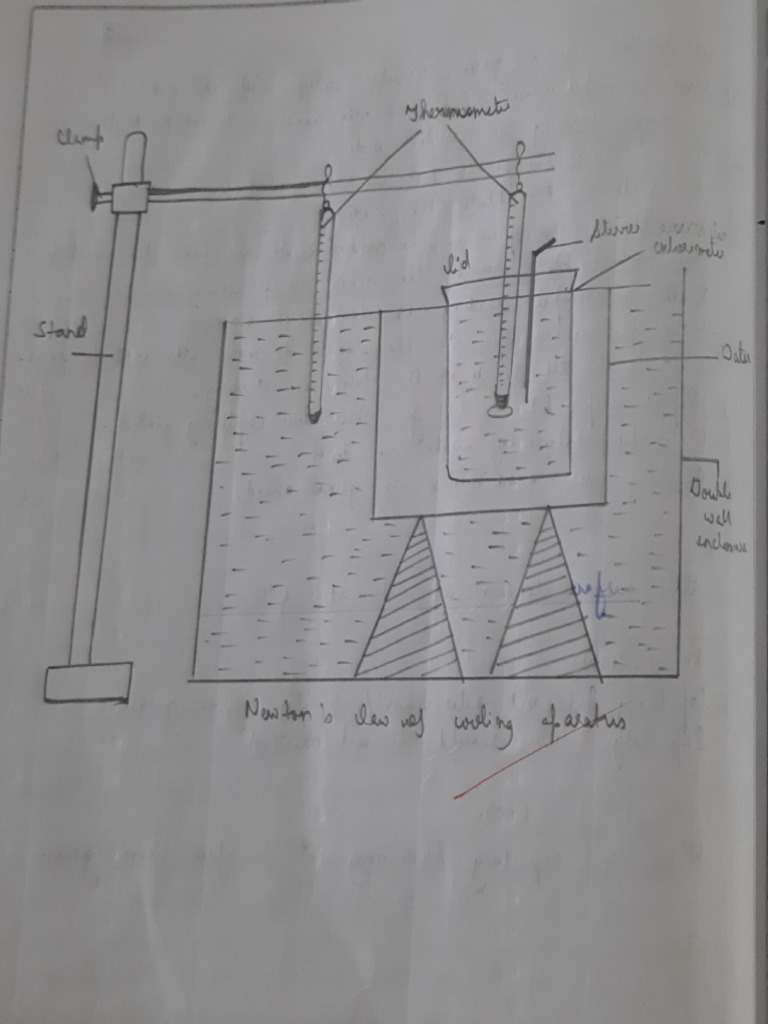 Thermometer
Clamp
Stirrer
calorimeter
lid
Stand
Water
Double
wall
enclosure
Newton's law of cooling aparatus